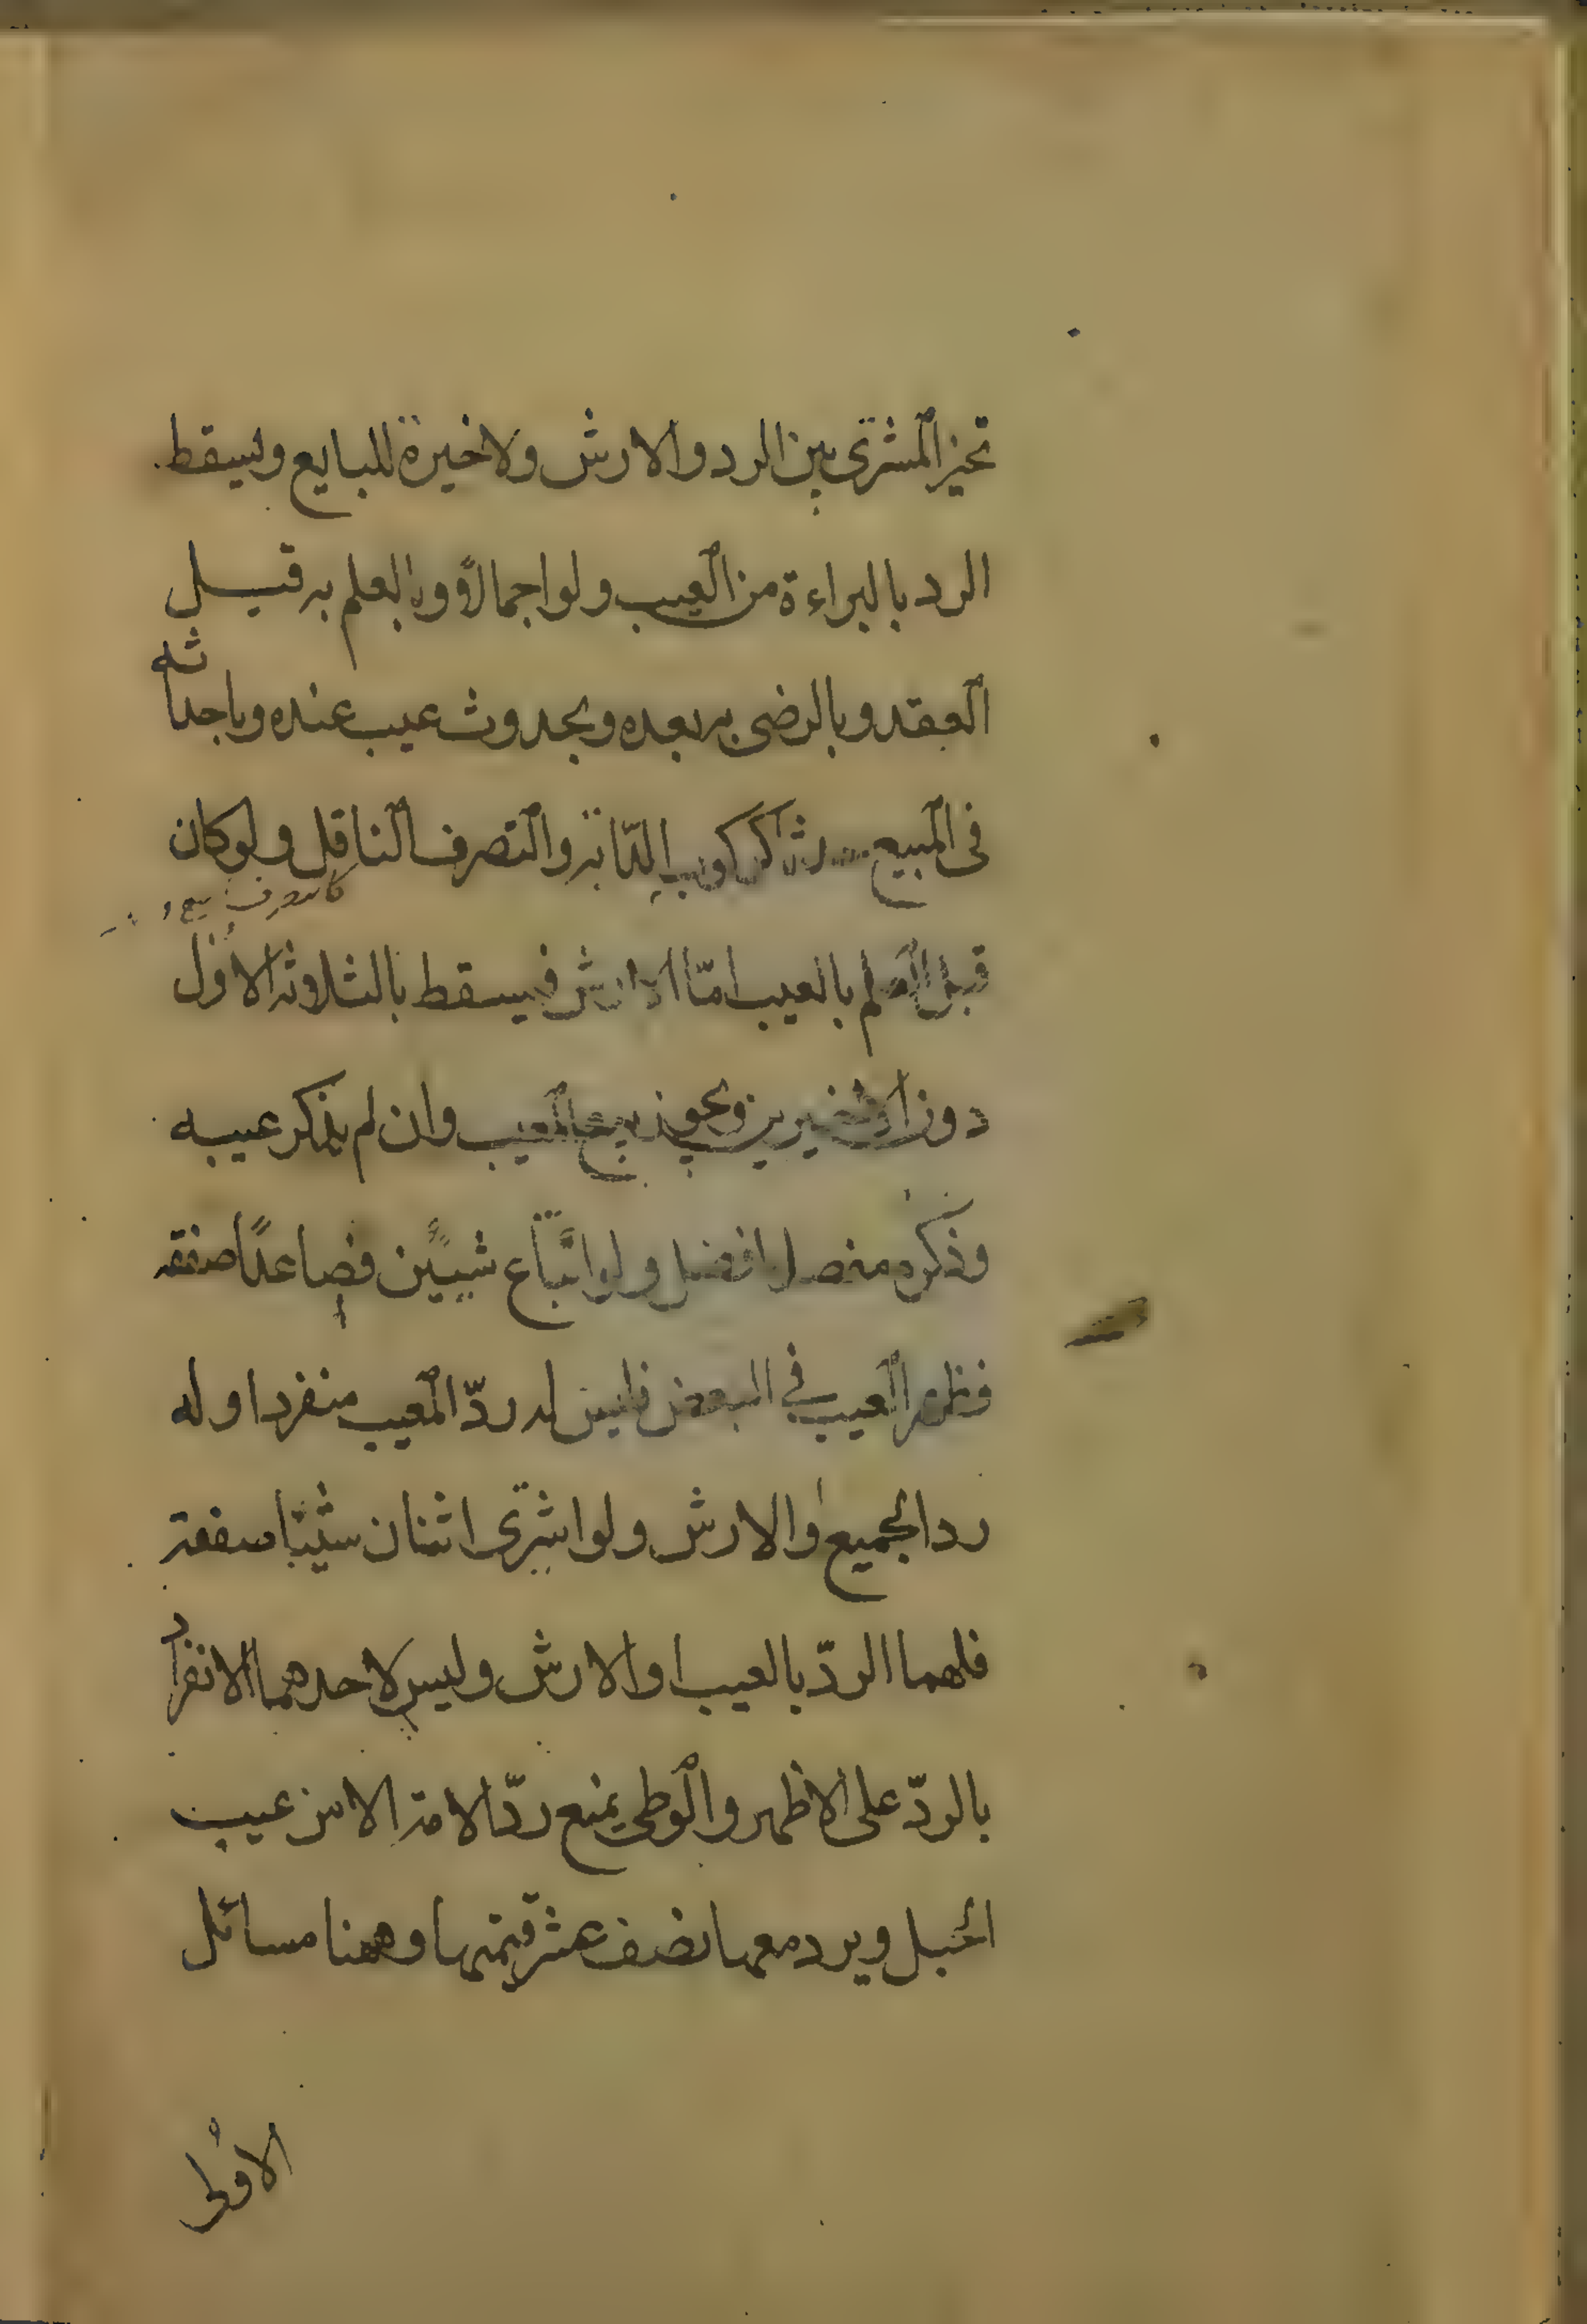 تخير المشترى بين الرد والارش ولا خيرة للبايع ويسقط
الرد بالبراءة من العيب ولو اجمالاً وبالعلم به قبل
العقد وبالرضى به بعده وبحدوث عيب عنده وباحداثه
فى المبيع كركوب الدّابة والتصرف الناقل ولو كان
قبل العلم بالعيب امّا الارش فيسقط بالثلاثة الاُول
دون الاخيرين ويجوز بيع المعيب وان لم يذكر عيبه
وذكره مفصلا افضل ولو ابتاع شيئين فصاعدًا صفقة
فظهر العيب في البعض فليس له ردّ المعيب منفردا وله
رد الجميع اوالارش ولو اشترى اثنان شيئا صفقة
فلهما الردّ بالعيب او الارش وليس لاحدهما الانفراد
بالردّ على الاظهر والوطى يمنع ردّ الامة الا من عيب
الحبل ويرد معها نصف عشر قيمتها وههنا مسائل
الاولى